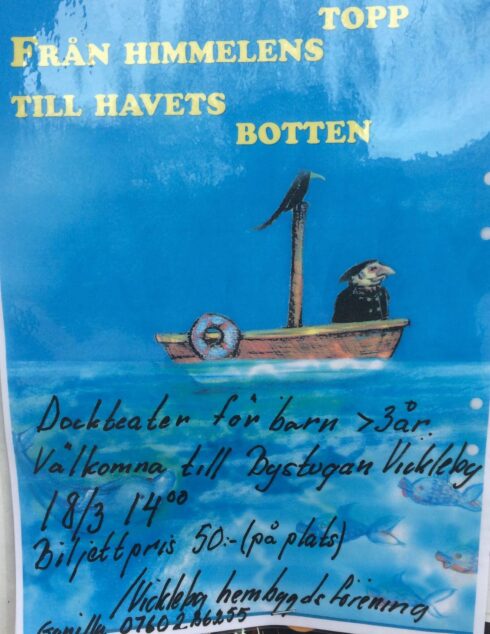 TOPP
FRÅN HIMMELENS
TILL HAVETS
BOTTEN
Dockteater för barn >3år.
Välkomna till Bystugan Vickleby
18/3 14⁰⁰
Biljettpris 50:- (på plats)
/Vickleby hembygdsförening
Gunilla